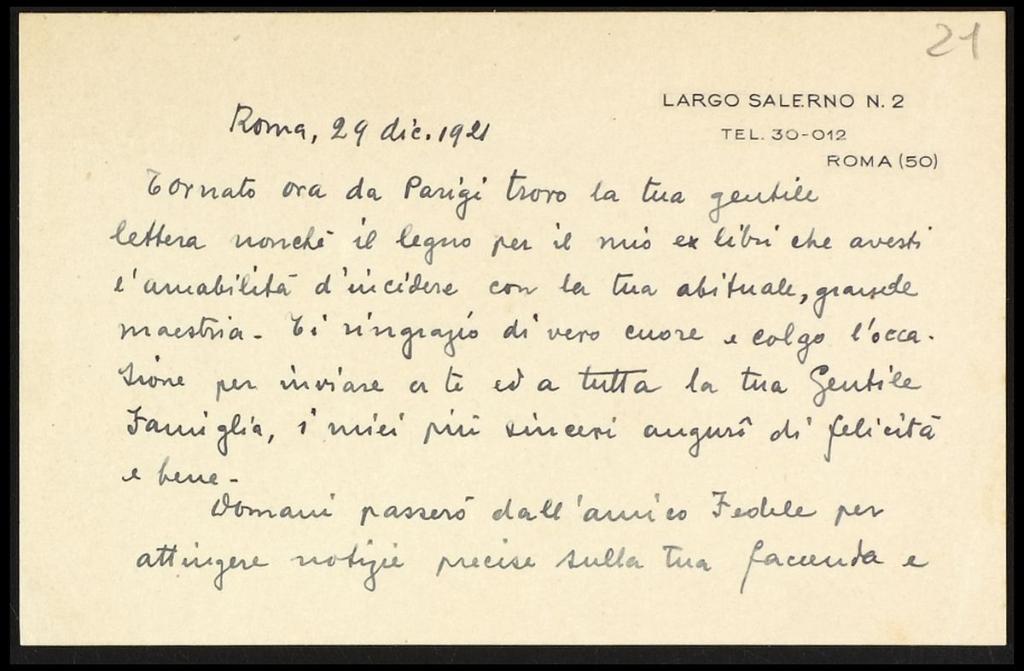 21
LARGO SALERNO N. 2
TEL. 30-012
ROMA (50)
Roma, 29 dic. 1921
Tornato ora da Parigi trovo la tua gentile
lettera nonchè il legno per il mio ex libri che avesti
l'amabilità d'incidere con la tua abituale, grande
maestria - Ti ringrazio di vero cuore e colgo l'occa-
sione per inviare a te ed a tutta la tua Gentile
Famiglia, i miei più sinceri augurî di felicità
e bene -
Domani passerò dall'amico Fedele per
attingere notizie precise sulla tua faccenda e